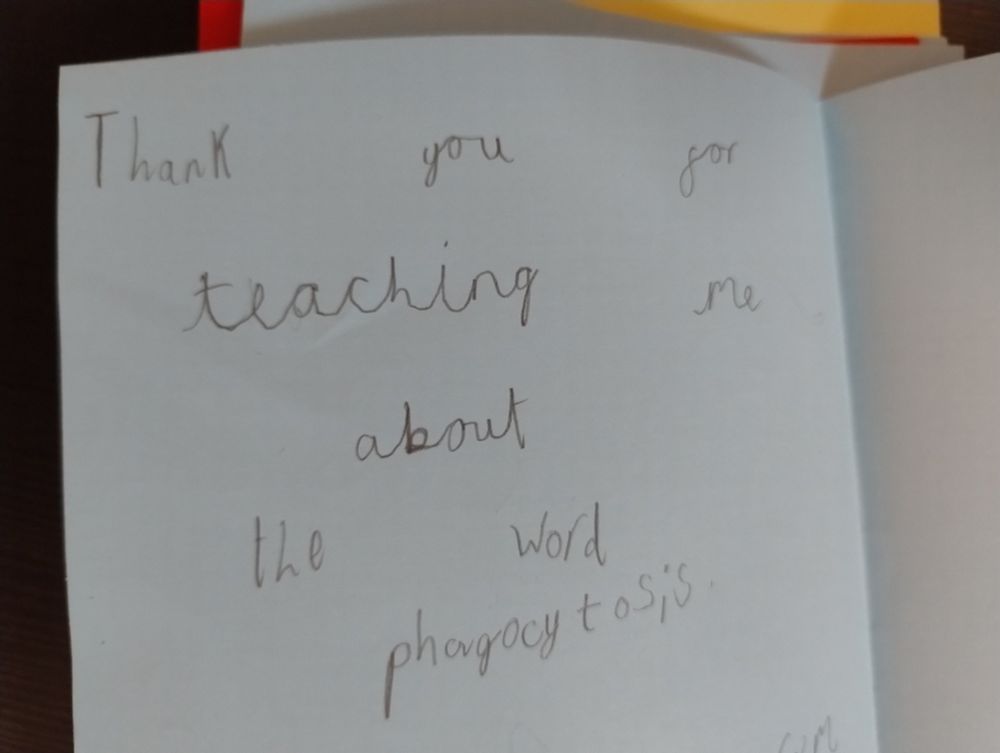 Thank you for
teaching me
about
the word
phagocytosis.